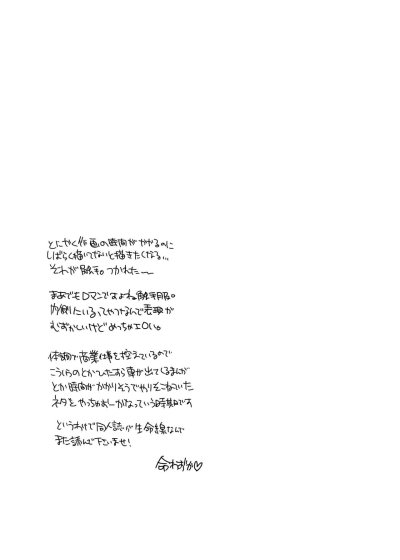 とにかく作画の時間がかかるのに
しばらく描いてないと描きたくなる…
それが触手。つかれた〜
まあでもロマンですよね触手服。
内側にいるってやつなんで表現が
むずかしいけどめっちゃエロい。
体調で商業仕事を控えているので
こうらのとかひたすら車が出てくるまんが
とか時間がかかりそうでやりそこねていた
ネタをやっちゃおーかなっていう時期です
というわけで同人誌が生命線なんで
また読んで下さいませ!